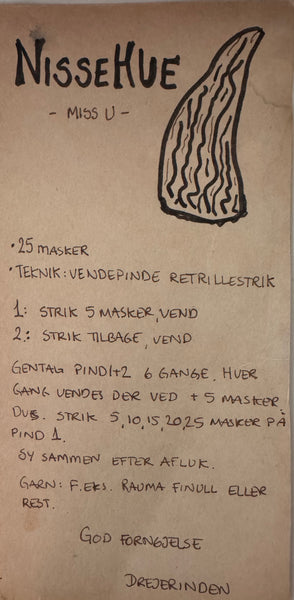 NISSEHUE
- MISS U -
• 25 MASKER
• TEKNIK: VENDEPINDE RETRILLESTRIK
1: STRIK 5 MASKER, VEND
2: STRIK TILBAGE, VEND
GENTAG PIND 1+2 6 GANGE. HVER
GANG VENDES DER VED + 5 MASKER.
DVS. STRIK 5, 10, 15, 20, 25 MASKER PÅ
PIND 1.
SY SAMMEN EFTER AFLUK.
GARN: F.EKS. RAUMA FINULL ELLER
REST.
GOD FORNØJELSE
DREJERINDEN